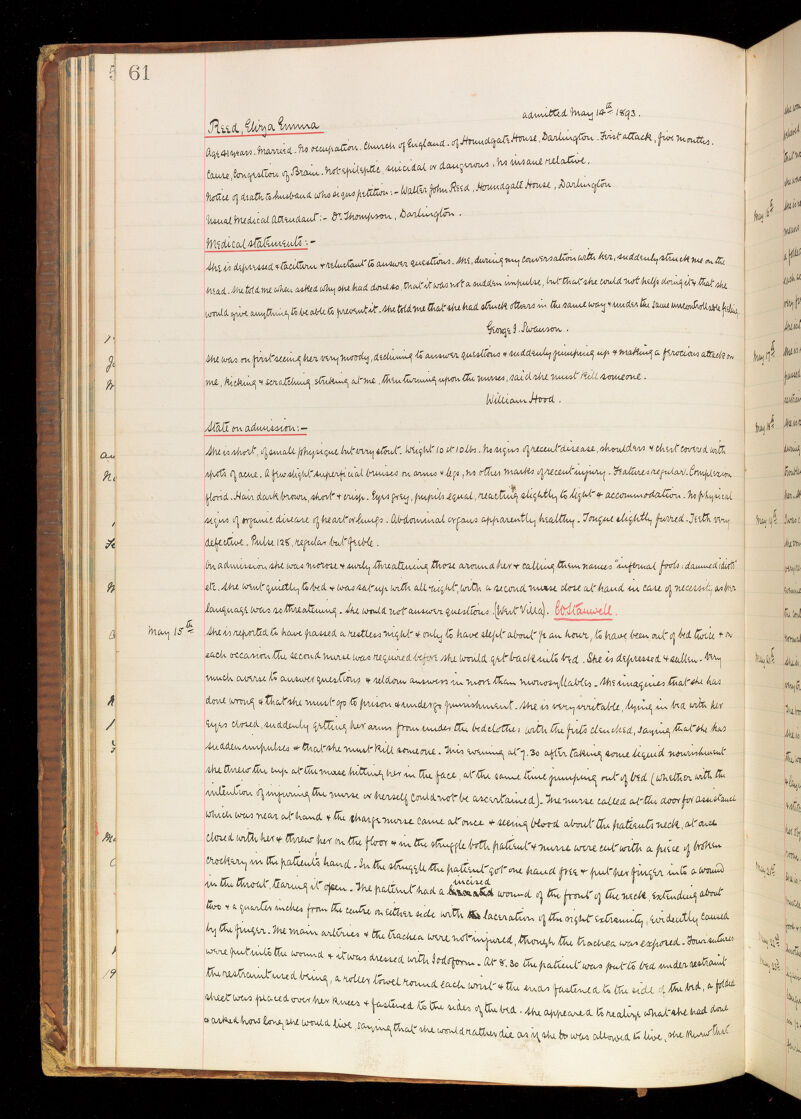 61
admitted May 14th 1893.
Reed, Eliza Emma
Age 41 years. Married. No occupation. Church of England. of Houndgate House, Darlington. First attack, five months.
Cause, Congestion of Brain. Not epileptic, suicidal or dangerous, No insane relative.
Notice of death to husband who signs petition:- Walter John Reed, Houndgate House, Darlington
Usual Medical Attendant:- Dr. Thompson, Darlington.
Medical statements:-
She is depressed & taciturn & reluctant to answer questions. She, during my conversation with her, suddenly struck me on the
head. She told me when asked why she had done so, that it was not a sudden impulse, but that she could not help doing it & that she
would give anything to be able to prevent it. She told me that she had struck others in the same way & under the same uncontrollable feeling.
George I. Swanson.
She was on first seeing her very moody, declining to answer questions & suddenly jumping up & making a ferocious attack on
me, kicking & scratching striking at me, then turning upon the nurses, said she must kill someone.
William Hood.
State on admission:-
She is short, of small physique but very stout. Weight 10 st 10 lbs. No signs of recent disease, shoulders & chest covered with
spots of acne. A few slight superficial bruises on arms & legs, no other marks of recent injury. Features regular. Complexion
florid. Hair dark brown, short & crisp. Eyes grey, pupils equal, reacting slightly to light & accommodation. No physical
signs of organic disease of heart or lungs. Abdominal organs apparently healthy. Tongue slightly furred. Teeth very
defective. Pulse 128, regular but feeble.
On admission she was morose & surly, threatening those around her & calling them names "infernal fools: damned idiots"
etc. She went quietly to bed & was sat up with all night, with a second nurse close at hand in case of necessity as her
language was so threatening. She would not answer questions. (West Villa).
May 15th She is reported to have passed a restless night & only to have slept about ½ an hour, to have been out of bed twice & on
each occasion the second nurse was required before she would get back into bed. She is depressed & sullen. Very
much averse to answer questions & seldom answers in more than monosyllables. She imagines that she has
done wrong & that she must go to prison & undergo punishment. She is very irritable, lying in bed with her
eyes closed, suddenly getting her arms from under the bedclothes with the fists clenched, saying that she has
sudden impulses & that she must kill someone. This evening at 7.30 after taking some liquid nourishment
she threw the cup at the nurse hitting her in the face, at the same time jumping out of bed (whether with the
intention of injuring the nurse or herself could not be ascertained). The nurse called at the door for assistance
which was near at hand & the charge nurse came at once & seeing blood about the patients neck, at once
closed with her & threw her on the floor & in the struggle both patient & nurse were cut with a piece of broken
crockery in the patient's hand. In the struggle the patient got one hand free & put her finger into a wound
in the throat, tearing it open. The patient had a incised wound of the front of the neck, extending about
two & a quarter inches from the centre on either side with laceration of the right extremity, evidently caused
by the finger. The main arteries & the trachea were not injured, though the trachea was exposed. Four sutures
were put into the wound & it was dressed with Iodoform. At 8.30 the patient was put to bed under restraint
the restraint used being, a roller towel round each wrist & the ends fastened to the side of the bed, a folded
sheet was placed over her knees & fastened to the sides of the bed. She appeared to realize what she had done
& asked how long she would live, saying that she would rather die as if she was allowed to live, she knew that
May 16th
May 17th
May 18th
May 19th